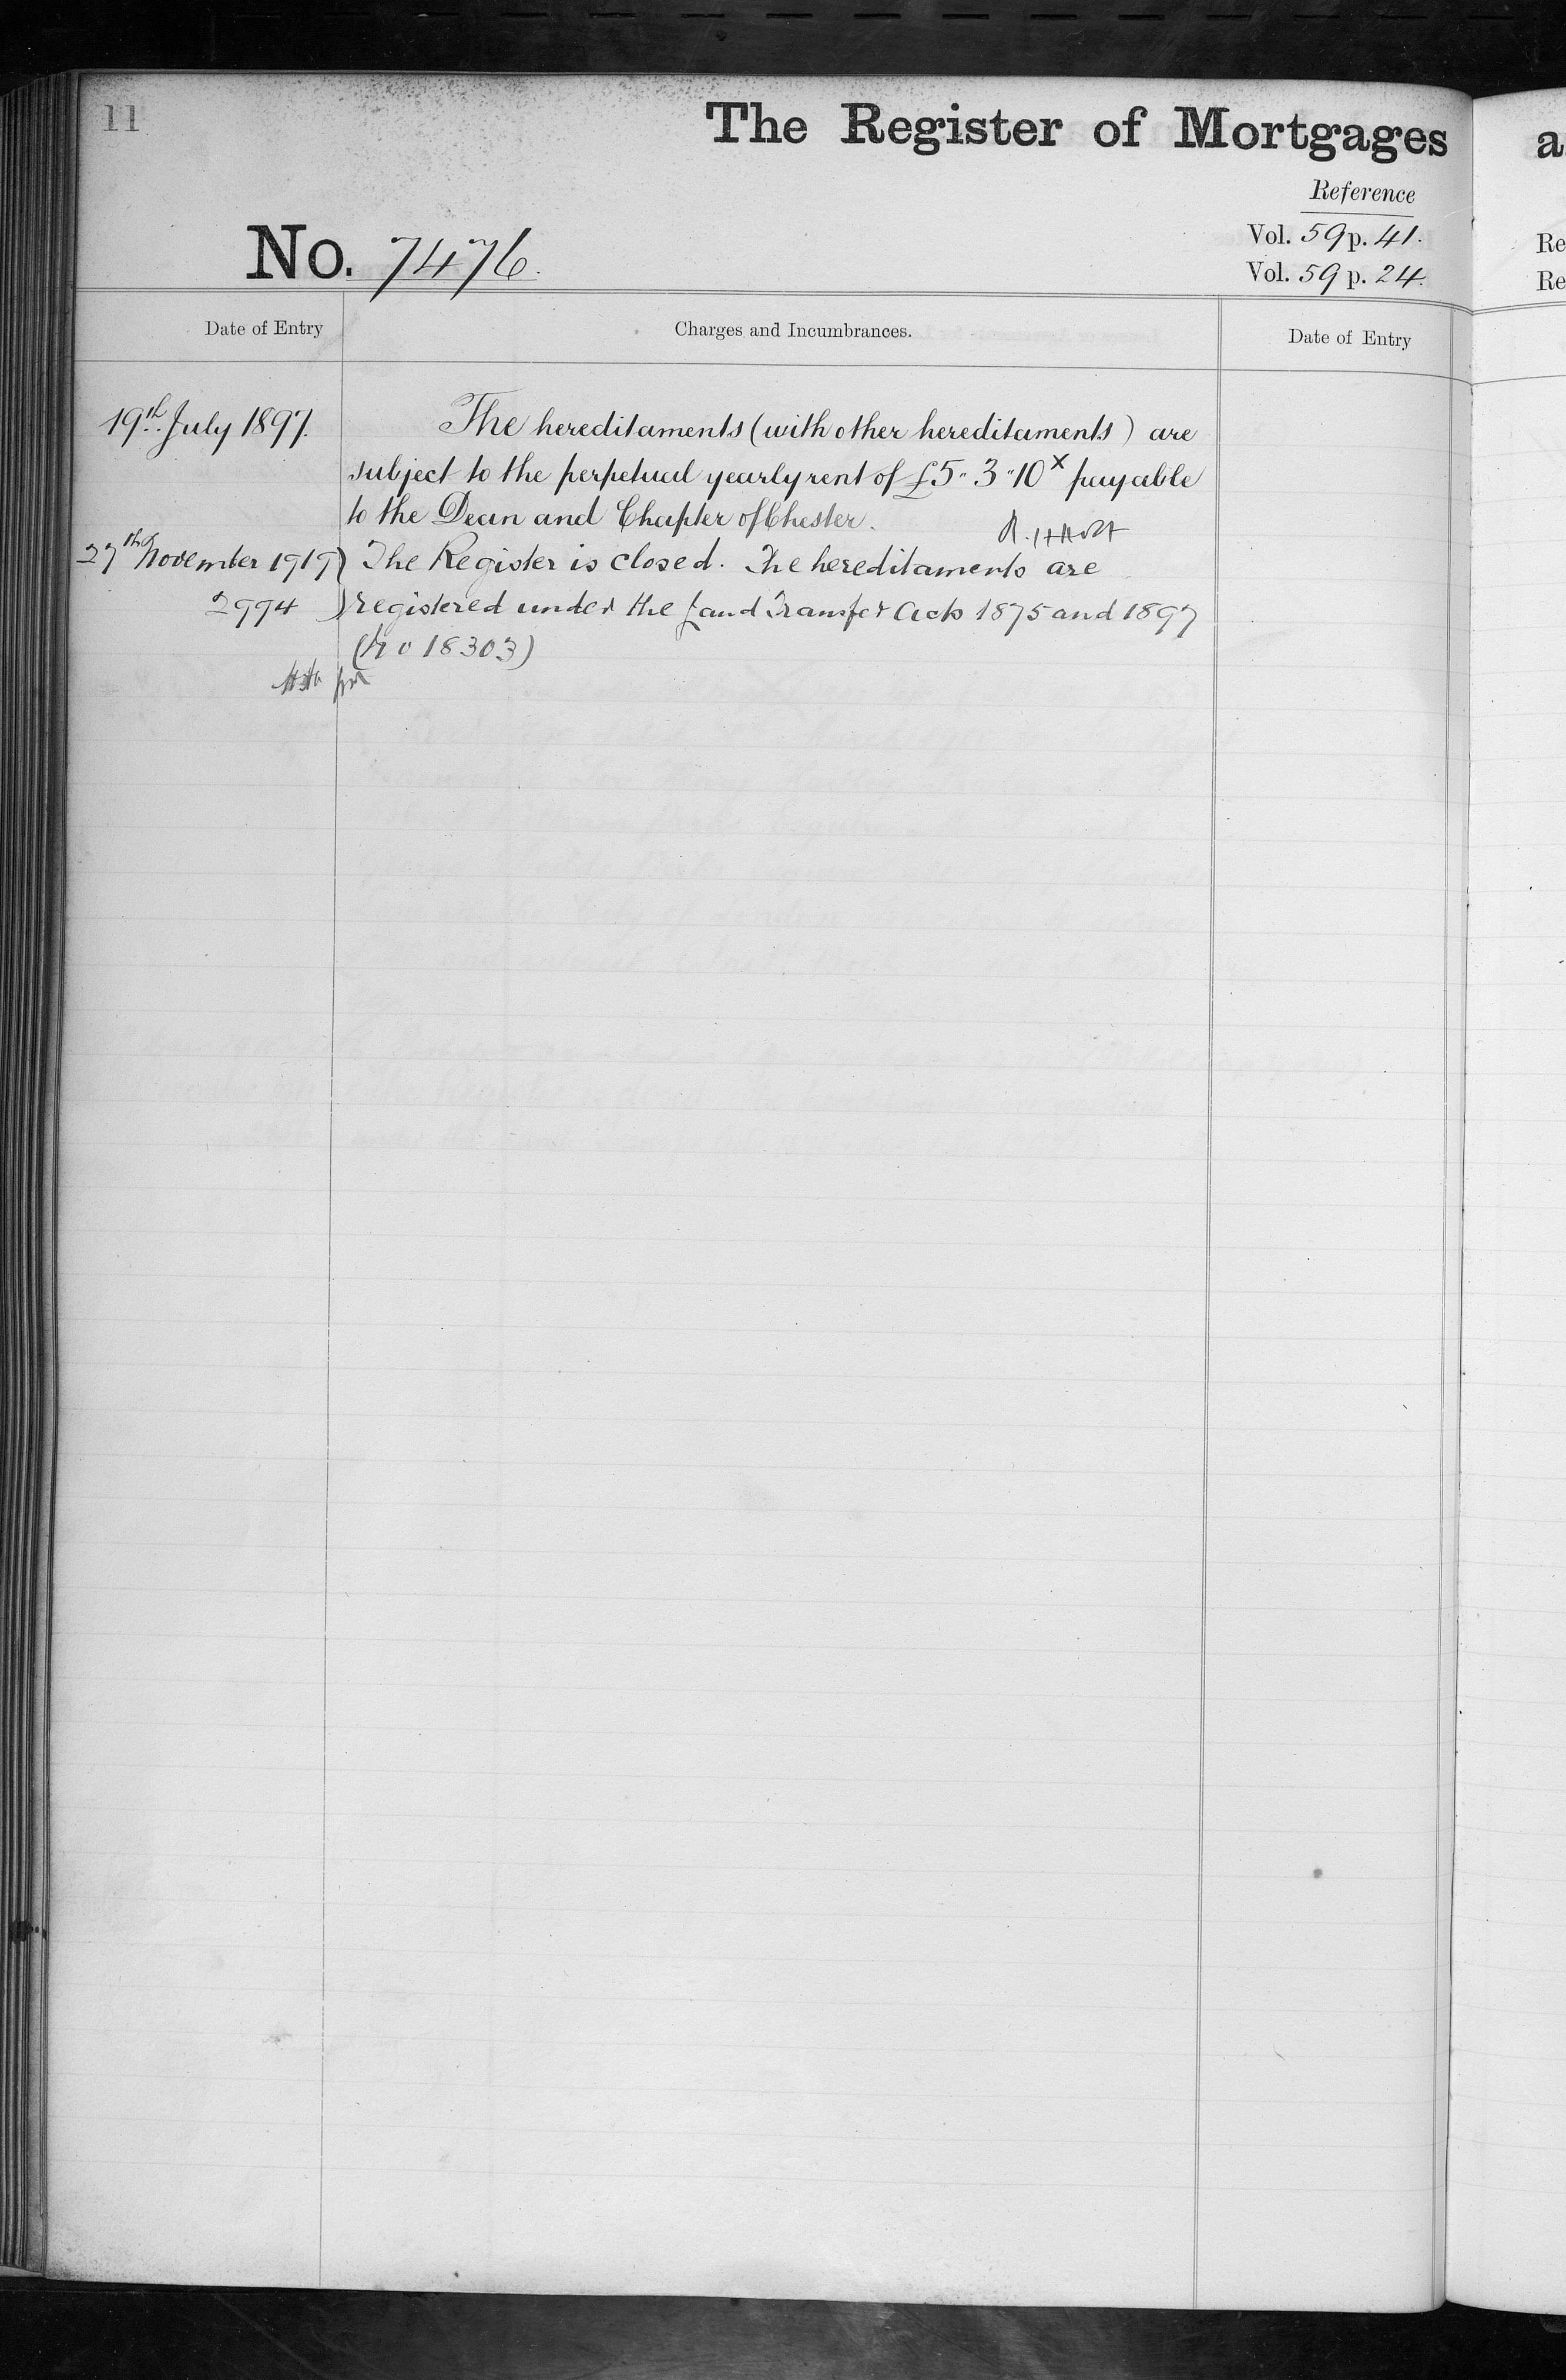 11
The Register of Mortgages
Reference
Vol. 59 p. 41.
No. 7476.
Vol. 59 p. 24.
Date of Entry
Charges and Incumbrances.
Date of Entry
19th July 1897.
The hereditaments (with other hereditaments) are
subject to the perpetual yearly rent of £5" 3" 10x payable
to the Dean and Chapter of Chester.
R. H Holt
27th November 1919) The Register is closed. The hereditaments are
2994 ) registered under the Land Transfer Acts 1875 and 1897
(No 18303)
a
Re
Re